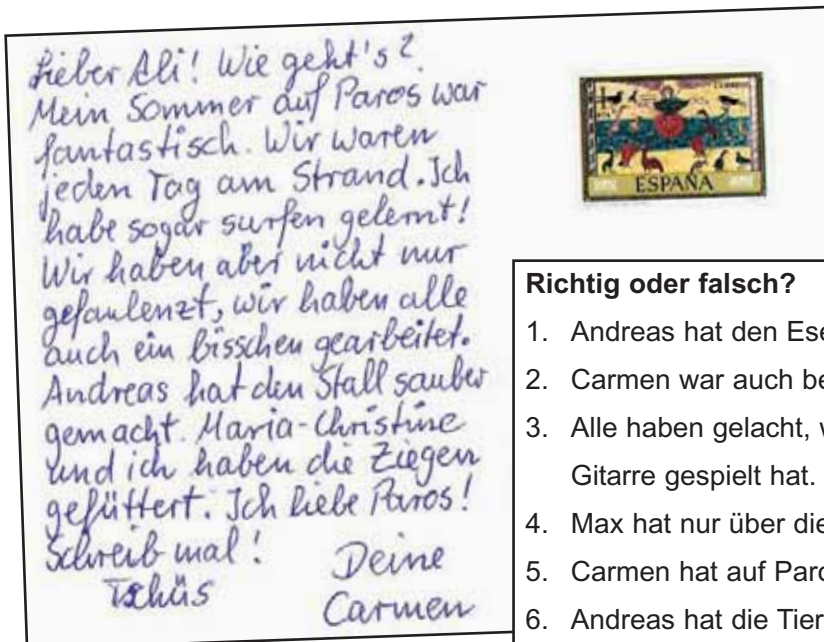 Lieber Ali! Wie geht's?
Mein Sommer auf Paros war
fantastisch. Wir waren
jeden Tag am Strand. Ich
habe sogar surfen gelernt!
Wir haben aber nicht nur
gefaulenzt, wir haben alle
auch ein bisschen gearbeitet.
Andreas hat den Stall sauber
gemacht. Maria-Christine
und ich haben die Ziegen
gefüttert. Ich liebe Paros!
Schreib mal!
Tschüs
Deine
Carmen
ESPAÑA
Richtig oder falsch?
1. Andreas hat den Ese
2. Carmen war auch be
3. Alle haben gelacht, w
Gitarre gespielt hat.
4. Max hat nur über die
5. Carmen hat auf Paro
6. Andreas hat die Tier